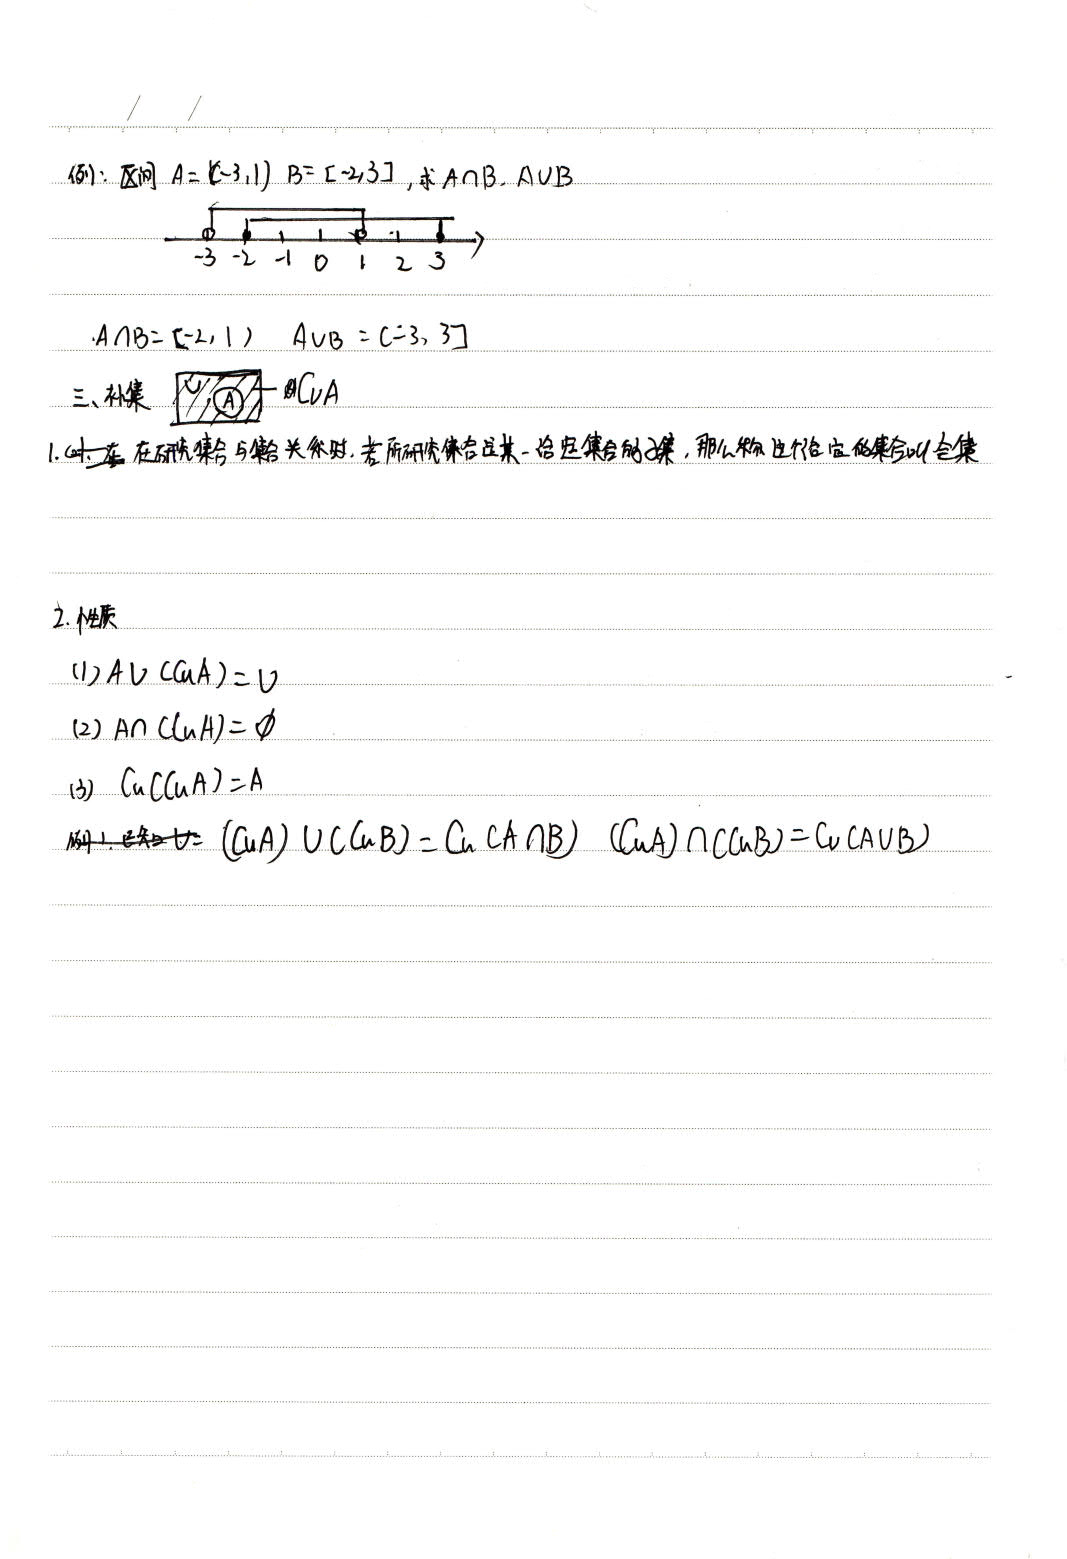 / /
例: 区间 A=(-3,1) B=[-2,3], 求A∩B. A∪B
-3 -2 -1 0 1 2 3
A∩B=[-2,1) A∪B=(-3,3]
三、补集 U A C∪A
1. 在研究集合与集合关系时.若所研究集合是某一给定集合的子集,那么称这个给定的集合叫全集
2.性质
(1) A∪(CuA)=U
(2) A∩(CuA)=∅
(3) Cu(CuA)=A
例1.已知U= (CuA)∪(CuB)=Cu(A∩B) (CuA)∩(CuB)=Cu(A∪B)